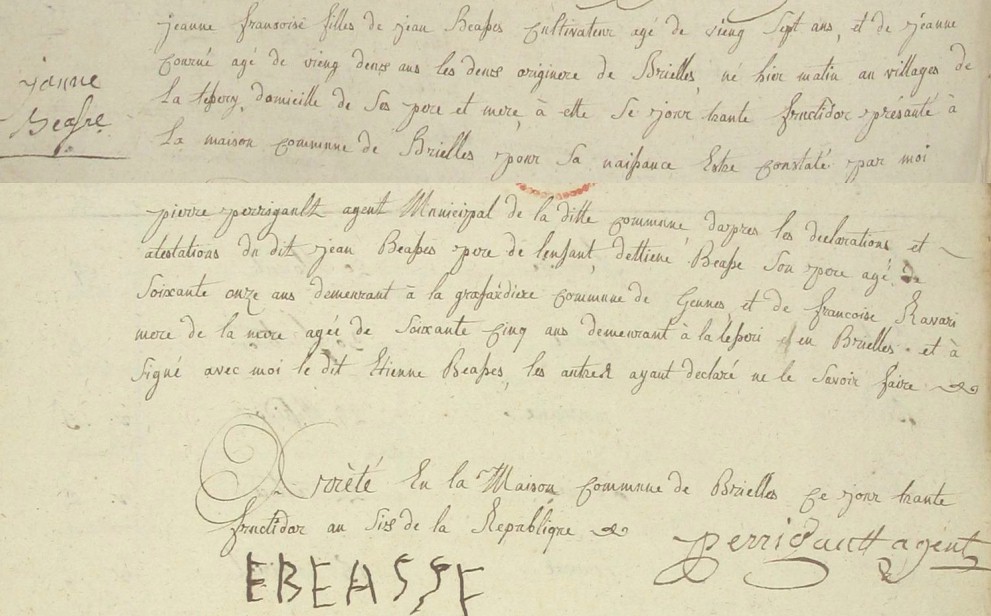 jeanne fransoise filles de jean Beasses Cultivateur agé de vieng Sept ans, et de jeanne
janne
Beasse
Courné agé de vieng deux ans les deux originere de Brielles, né hier matin au villages de
La tessery, domicille de Ses pere et mere, à ette Se jour trante fructidor présanté à
La maison Commune de Brielles pour Sa naissance Estre Constaté par moi
pierre perrigault agent Municipal de la ditte commune, daprés les declarations et
atestations du dit jean Beasses pere de lenfant, dettiene Beasse Son pere agé de
Soixante onze ans demeurant à la Commune de Gennes et de francoise Ravari
mere de la mere agée de Soixante Cinq ans demeurant à la tesseri en Brielles. et à
Signé avec moi le dit Etienne Beasses, les autres ayant declaré ne le Savoir faire
Arrèté En la Maison Commune de Brielles Ce jour trante
fructidor an Six de la Republique
perrigault agent
EBEASSE